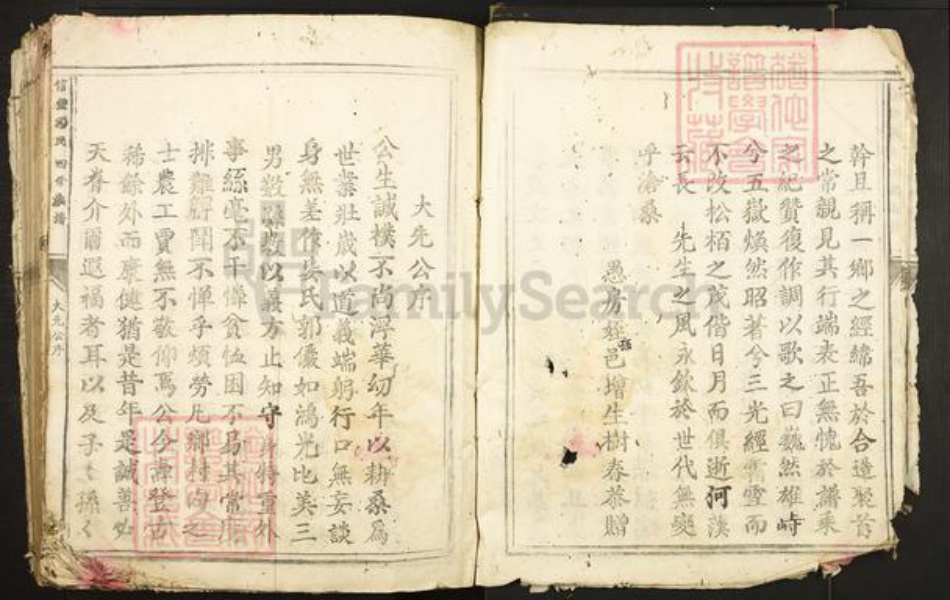 幹且稱一鄉之經綸吾於合造聚首
之常親見其行端表正無愧於譜乘
之紀贊復作調以歌之曰巍然雄峙
兮五嶽煥然昭著兮三光經霜雪而
不改松栢之茂偕日月而俱逝河漢
云長 先生之風永欽於世代無變
乎滄桑
愚房姪邑增生樹春恭贈
大先公序
公生誠樸不尚浮華幼年以耕桑爲
世業壯歲以道義端躬行口無妄談
身無差作娶氏郭儼如鴻光比美三
男數以義方止知守身特重外
事絲毫不干憚貧恤困不易其常
排難解鬧不憚乎煩勞凡鄉村之
士農工賈無不敬仰焉公今壽登古
稀餘外而康健猶是昔年是誠善如
天眷介爾遐福者耳以及子々孫々
大先公序
FamilySearch